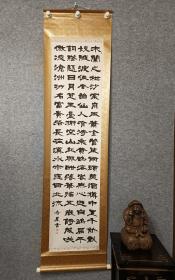 木蘭之枻沙棠舟玉簫金管坐兩頭美酒尊中置千斛載
妓隨波任去留仙人有待乘黃鶴海客無心隨白鷗屈平
詞賦懸日月楚王臺榭空山丘興酣落筆搖五嶽詩成笑
傲凌滄洲功名富貴若長在漢水亦應西北流